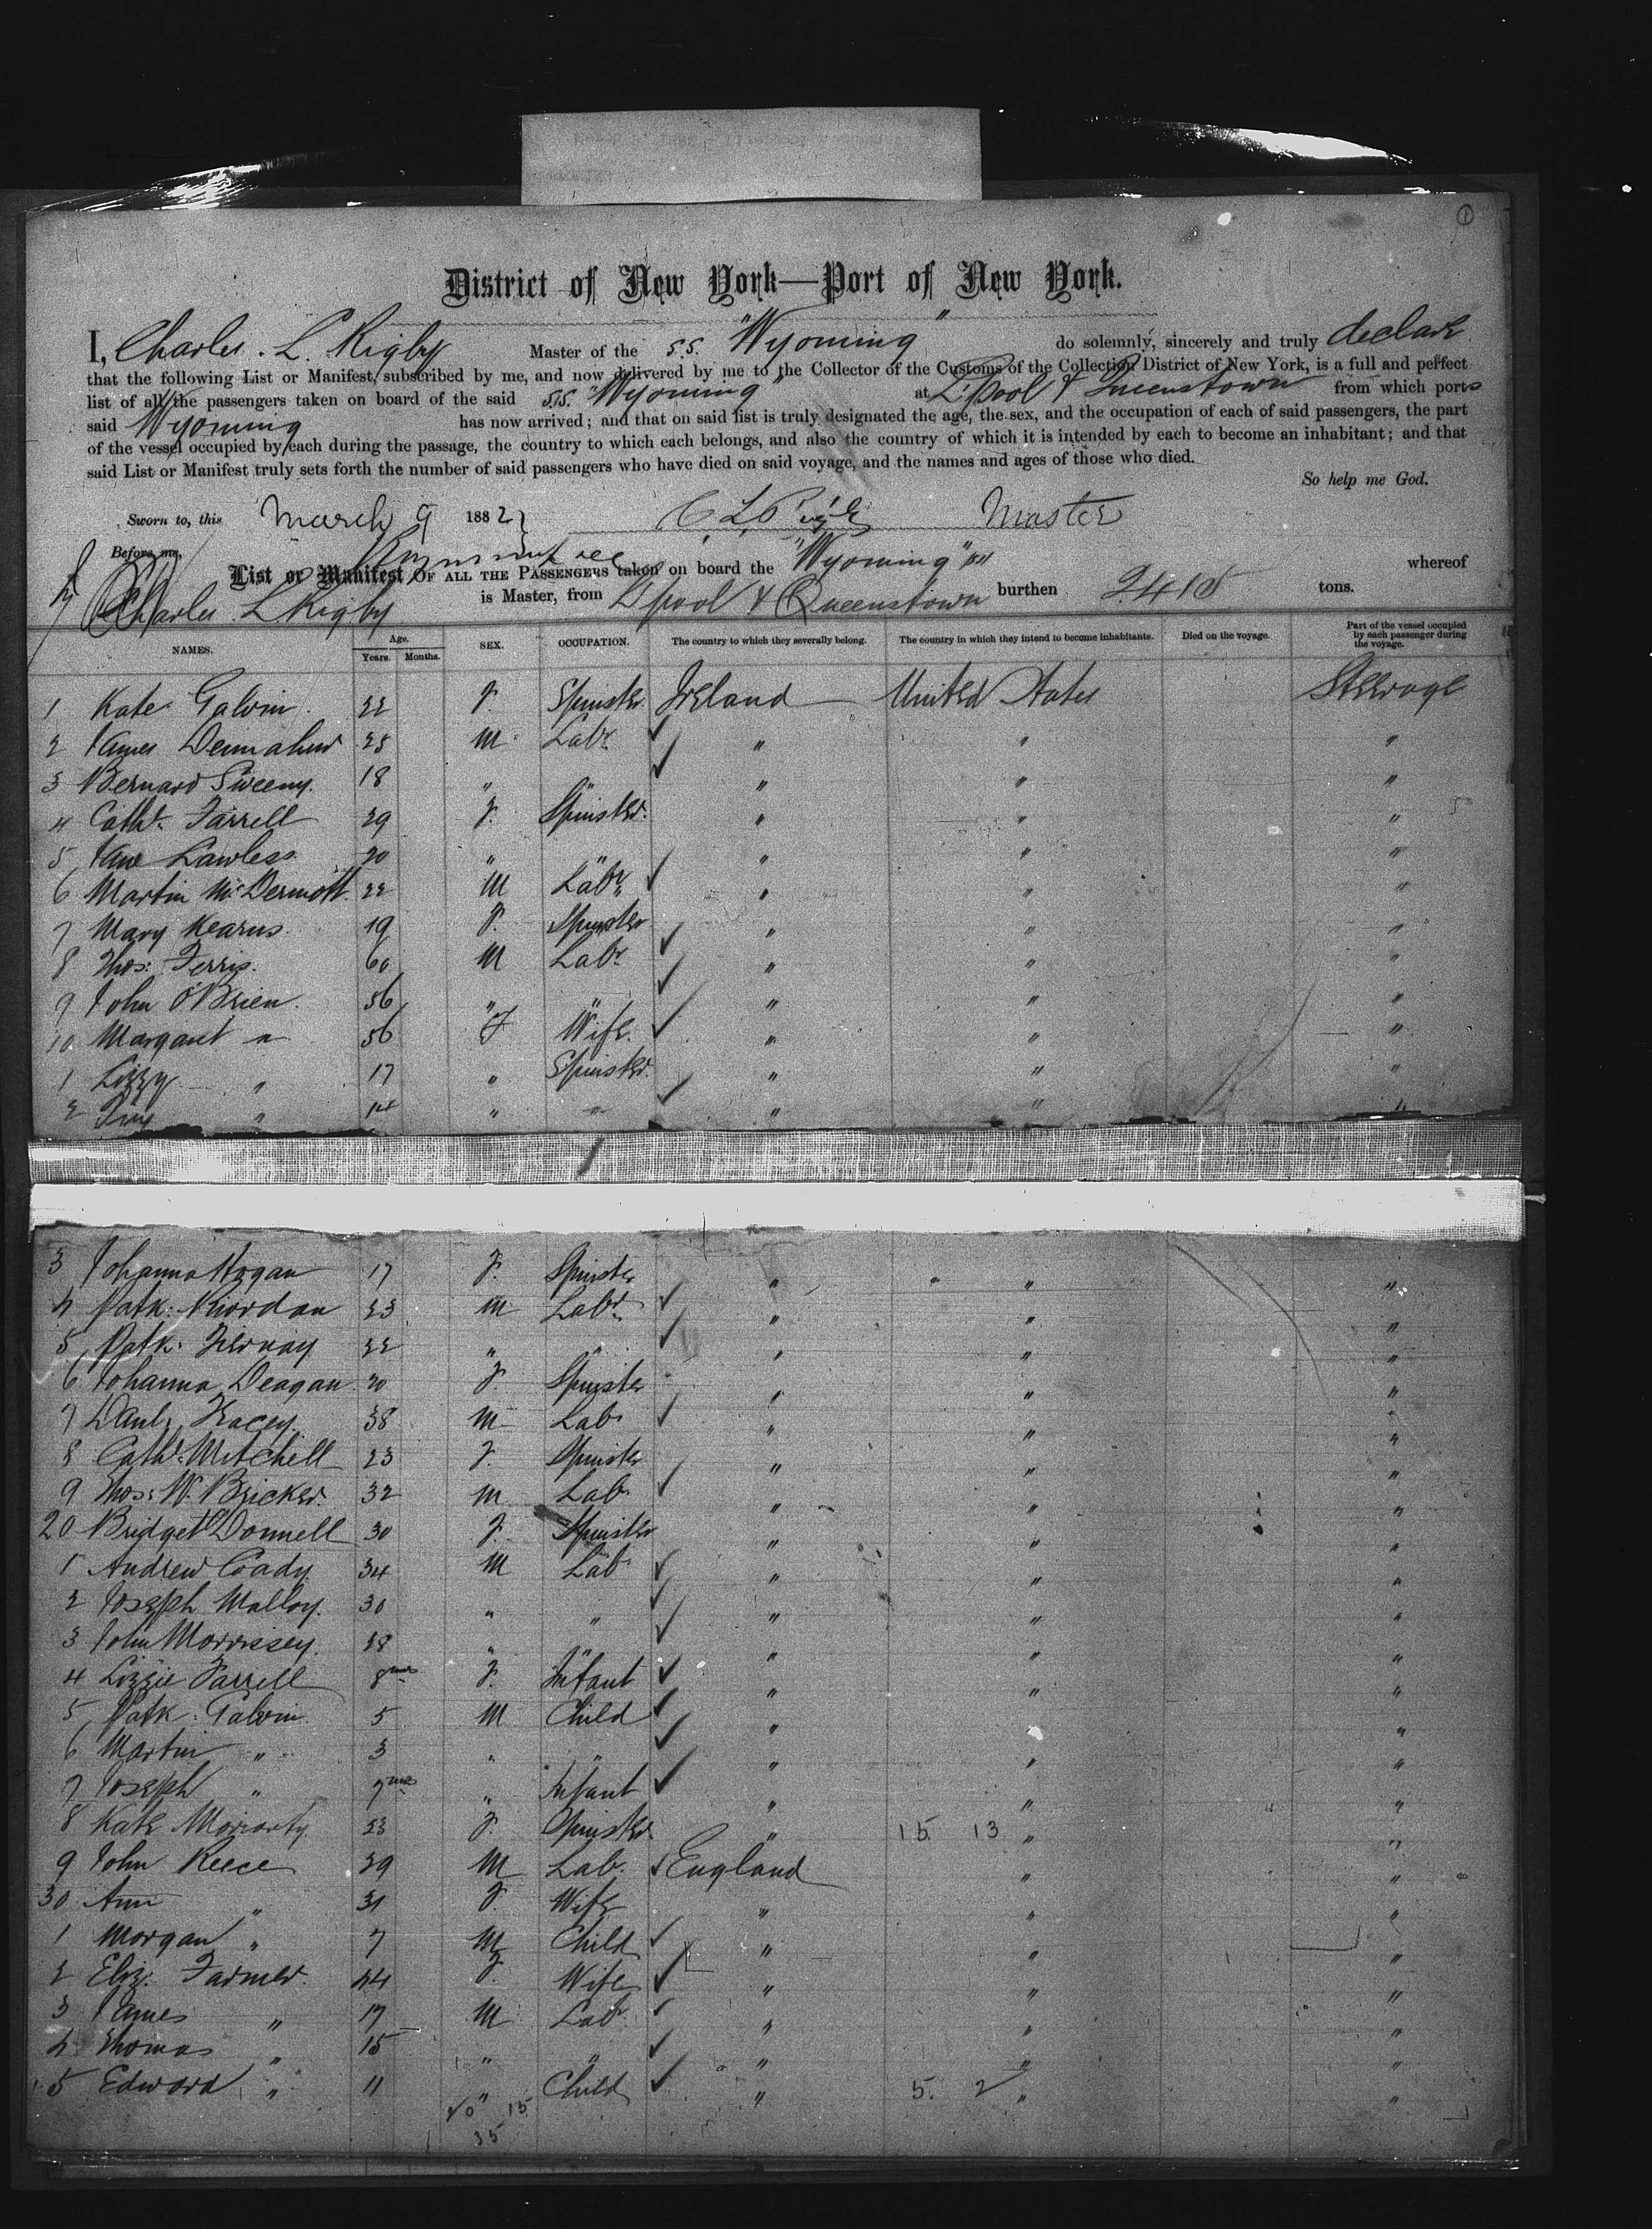 ①
District of New York—Port of New York.
I, Charles. L. Rigby Master of the s.s. "Wyoming" do solemnly, sincerely and truly declare
that the following List or Manifest, subscribed by me, and now delivered by me to the Collector of the Customs of the Collection District of New York, is a full and perfect
list of all the passengers taken on board of the said s.s. "Wyoming" at L'Pool & Queenstown from which ports
said Wyoming has now arrived; and that on said list is truly designated the age, the sex, and the occupation of each of said passengers, the part
of the vessel occupied by each during the passage, the country to which each belongs, and also the country of which it is intended by each to become an inhabitant; and that
said List or Manifest truly sets forth the number of said passengers who have died on said voyage, and the names and ages of those who died.
So help me God.
Sworn to, this March 9 1882 Master
Before me,
List or Manifest OF ALL THE PASSENGERS taken on board the "Wyoming" whereof
Charles L Rigby is Master, from L'pool & Queenstown burthen 2415 tons.
NAMES. Age. Years. Months. SEX. OCCUPATION. The country to which they severally belong. The country in which they intend to become inhabitants. Died on the voyage. Part of the vessel occupied by each passenger during the voyage.
1 Kate Galvin 22 F. Spinster Ireland United States Steerage
2 James 25 M Labr " " "
3 Bernard Sweeny. 18 " " " " "
4 Cath. Farrell 29 F. Spinster. " " "
5 Jane Lawless 20 " " " " "
6 Martin McDermott. 22 M Labr " " "
7 Mary Kearns 19 F. Spinster " " "
8 Thos: Ferris. 60 M Labr " " "
9 John O'Brien. 56 " " " " "
10 Margaret " 56 F Wife. " " "
1 Lizzy " 17 " Spinster. " " "
2 " 14 " " " " "
3 Johanna Hogan 17 F. Spinster " " "
4 Patk: Riordan 23 m Labr " " "
5 Patk: Tiernay 22 " " " " "
6 Johanna Deagan 20 F. Spinster " " "
7 Danl. Tracey. 38 m Lab " " "
8 Cath. Mitchell 23 F. Spinster " " "
9 Thos: W. Bricker. 32 m Lab. " " "
20 Bridget O'Donnell 30 F. Spinster " " "
1 Andrew Coady. 34 M Lab " " "
2 Joseph Malloy. 30 " " " " "
3 John Morrissey. 28 " " " " "
4 Lizzie Farrell 8 mos F. Infant " " "
5 Patk: Galvin. 5 M Child " " "
6 Martin " 3 " " " " "
7 Joseph " 7 mos " Infant " " "
8 Kate Moriarty. 23 F. Spinster. " 15. 13 " "
9 John Reece 29 M Lab. England " "
30 Ann " 31 F. Wife " " "
1 Morgan " 7 M Child " " "
2 Eliz. Farmer. 44 F. Wife " " "
3 James " 17 M Lab. " " "
4 Thomas " 15 " " " " "
5 Edward " 11 " Child " 5. 2 " "
20 15
35